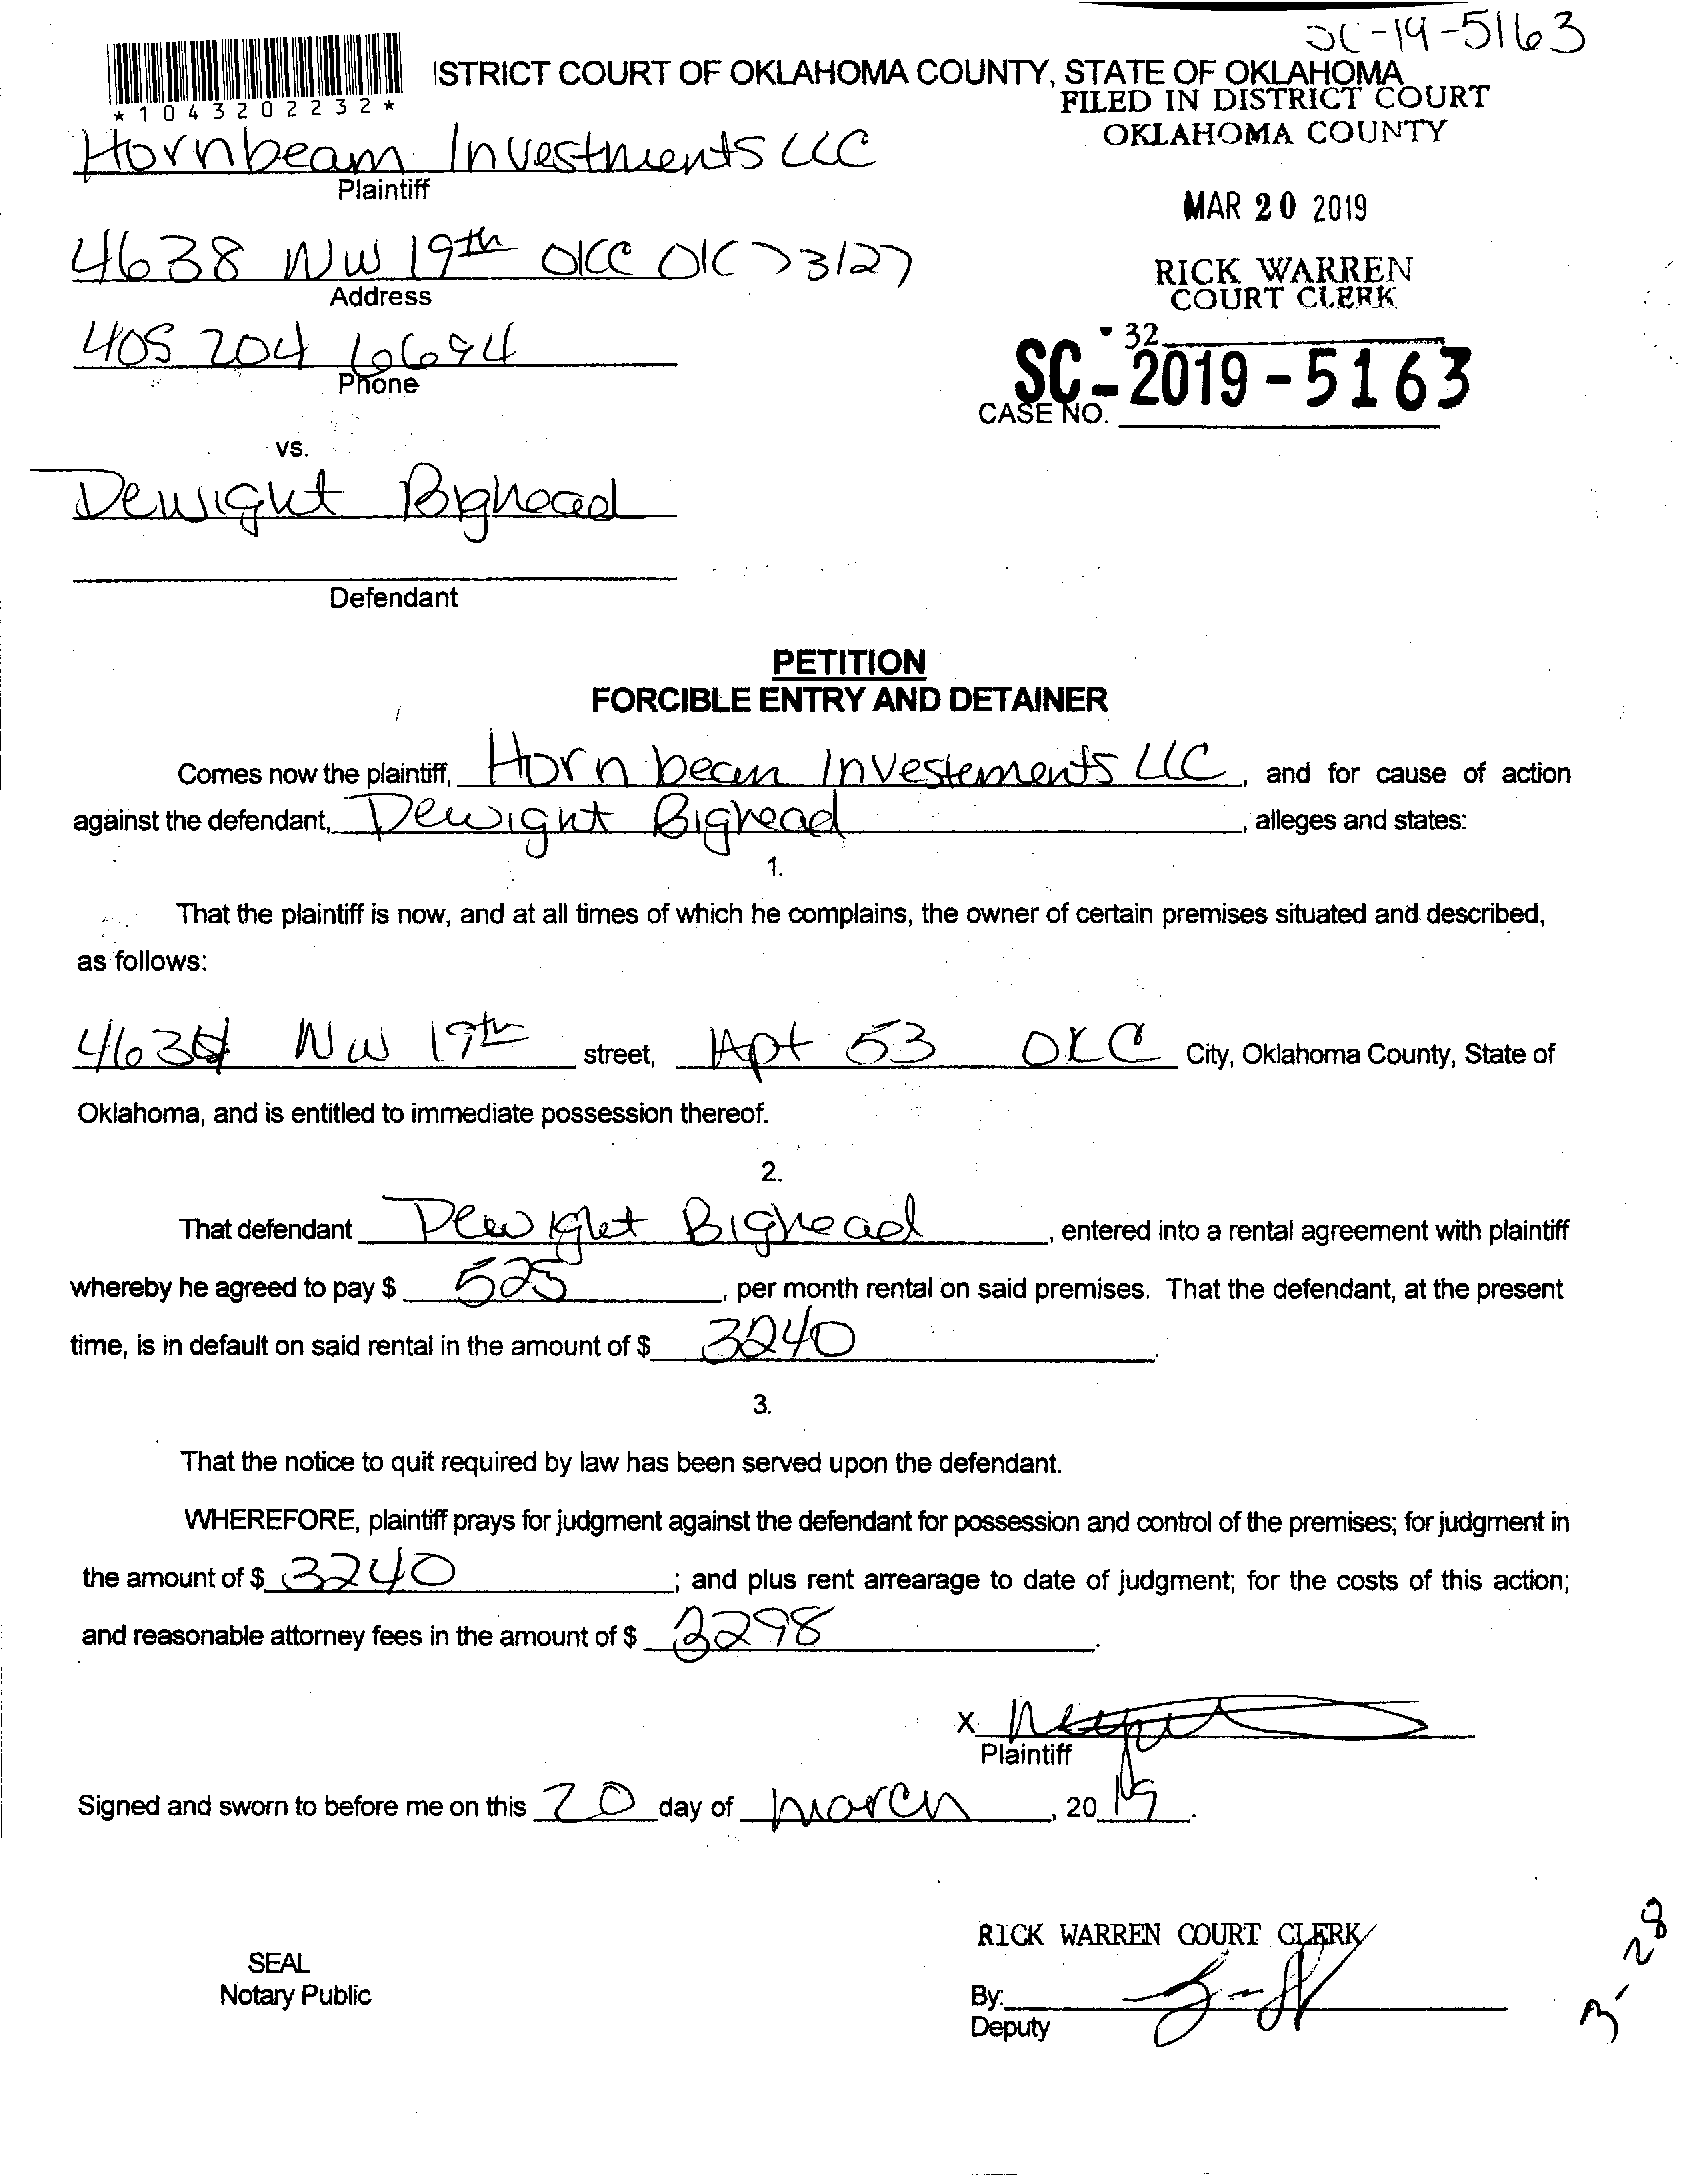 SC-19-5163
ISTRICT COURT OF OKLAHOMA COUNTY, STATE OF OKLAHOMA
*1043202232*
FILED IN DISTRICT COURT
OKLAHOMA COUNTY
Hornbeam Investments LLC
Plaintiff
MAR 20 2019
4638 NW 19th OKC OK 73127
Address
RICK WARREN
COURT CLERK
405 204 6694
Phone
32
SC-2019-5163
CASE NO.
vs.
Dewight Bighead
Defendant
PETITION
FORCIBLE ENTRY AND DETAINER
Comes now the plaintiff, Hornbeam Investements LLC, and for cause of action
against the defendant, Dewight Bighead, alleges and states:
1.
That the plaintiff is now, and at all times of which he complains, the owner of certain premises situated and described,
as follows:
NW 19th street, Apt 53 OKC City, Oklahoma County, State of
Oklahoma, and is entitled to immediate possession thereof.
2.
That defendant Dewight Bighead, entered into a rental agreement with plaintiff
whereby he agreed to pay $ 525, per month rental on said premises. That the defendant, at the present
time, is in default on said rental in the amount of $ 3240.
3.
That the notice to quit required by law has been served upon the defendant.
WHEREFORE, plaintiff prays for judgment against the defendant for possession and control of the premises; for judgment in
the amount of $ 3240; and plus rent arrearage to date of judgment; for the costs of this action;
and reasonable attorney fees in the amount of $ 3298.
X
Plaintiff
Signed and sworn to before me on this 20 day of march, 2019.
RICK WARREN COURT CLERK
SEAL
Notary Public
By:
Deputy
3-28